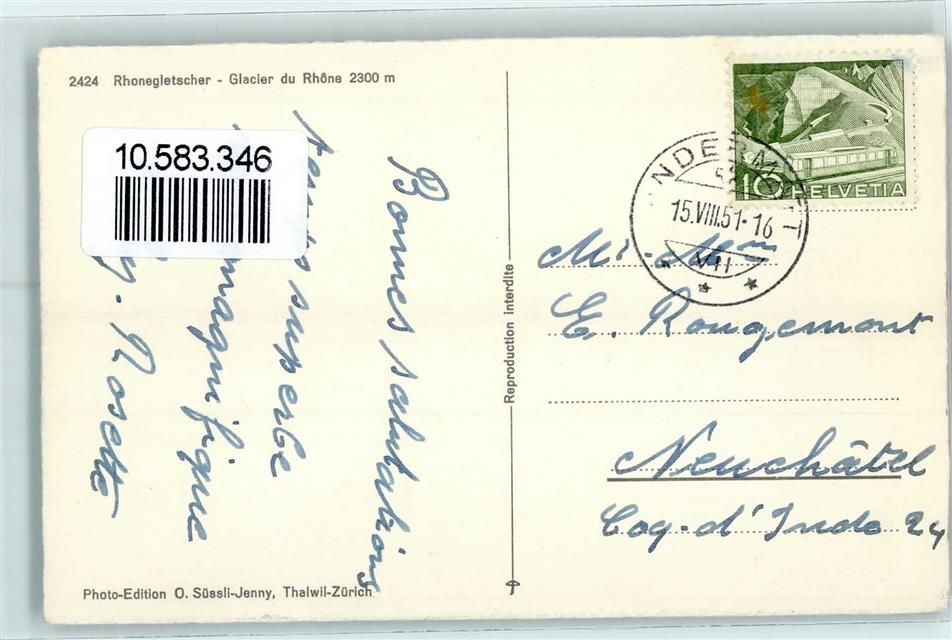 2424 Rhonegletscher - Glacier du Rhône 2300 m
10.583.346
Bonnes salutations
temps superbe
magnifique
Rosette
Photo-Edition O. Süssli-Jenny, Thalwil-Zürich
Reproduction interdite
10 HELVETIA
NDERMATT
15.VIII.51-16
VII
Mr-Mme
E. Rougemont
Neuchâtel
Coq-d'Inde 24